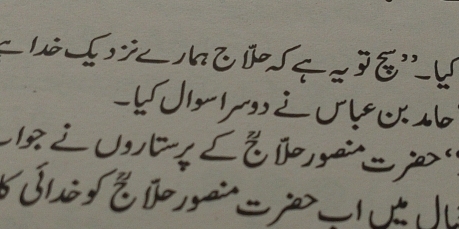 کیا۔ ’’سچ تو یہ ہے کہ حلاج ہمارے نزدیک خدا ہے
حامد بن عباس نے دوسرا سوال کیا۔
’’حضرت منصور حلاجؒ کے پرستاروں نے جواب
میں اب حضرت منصور حلاجؒ کو خدائی کا